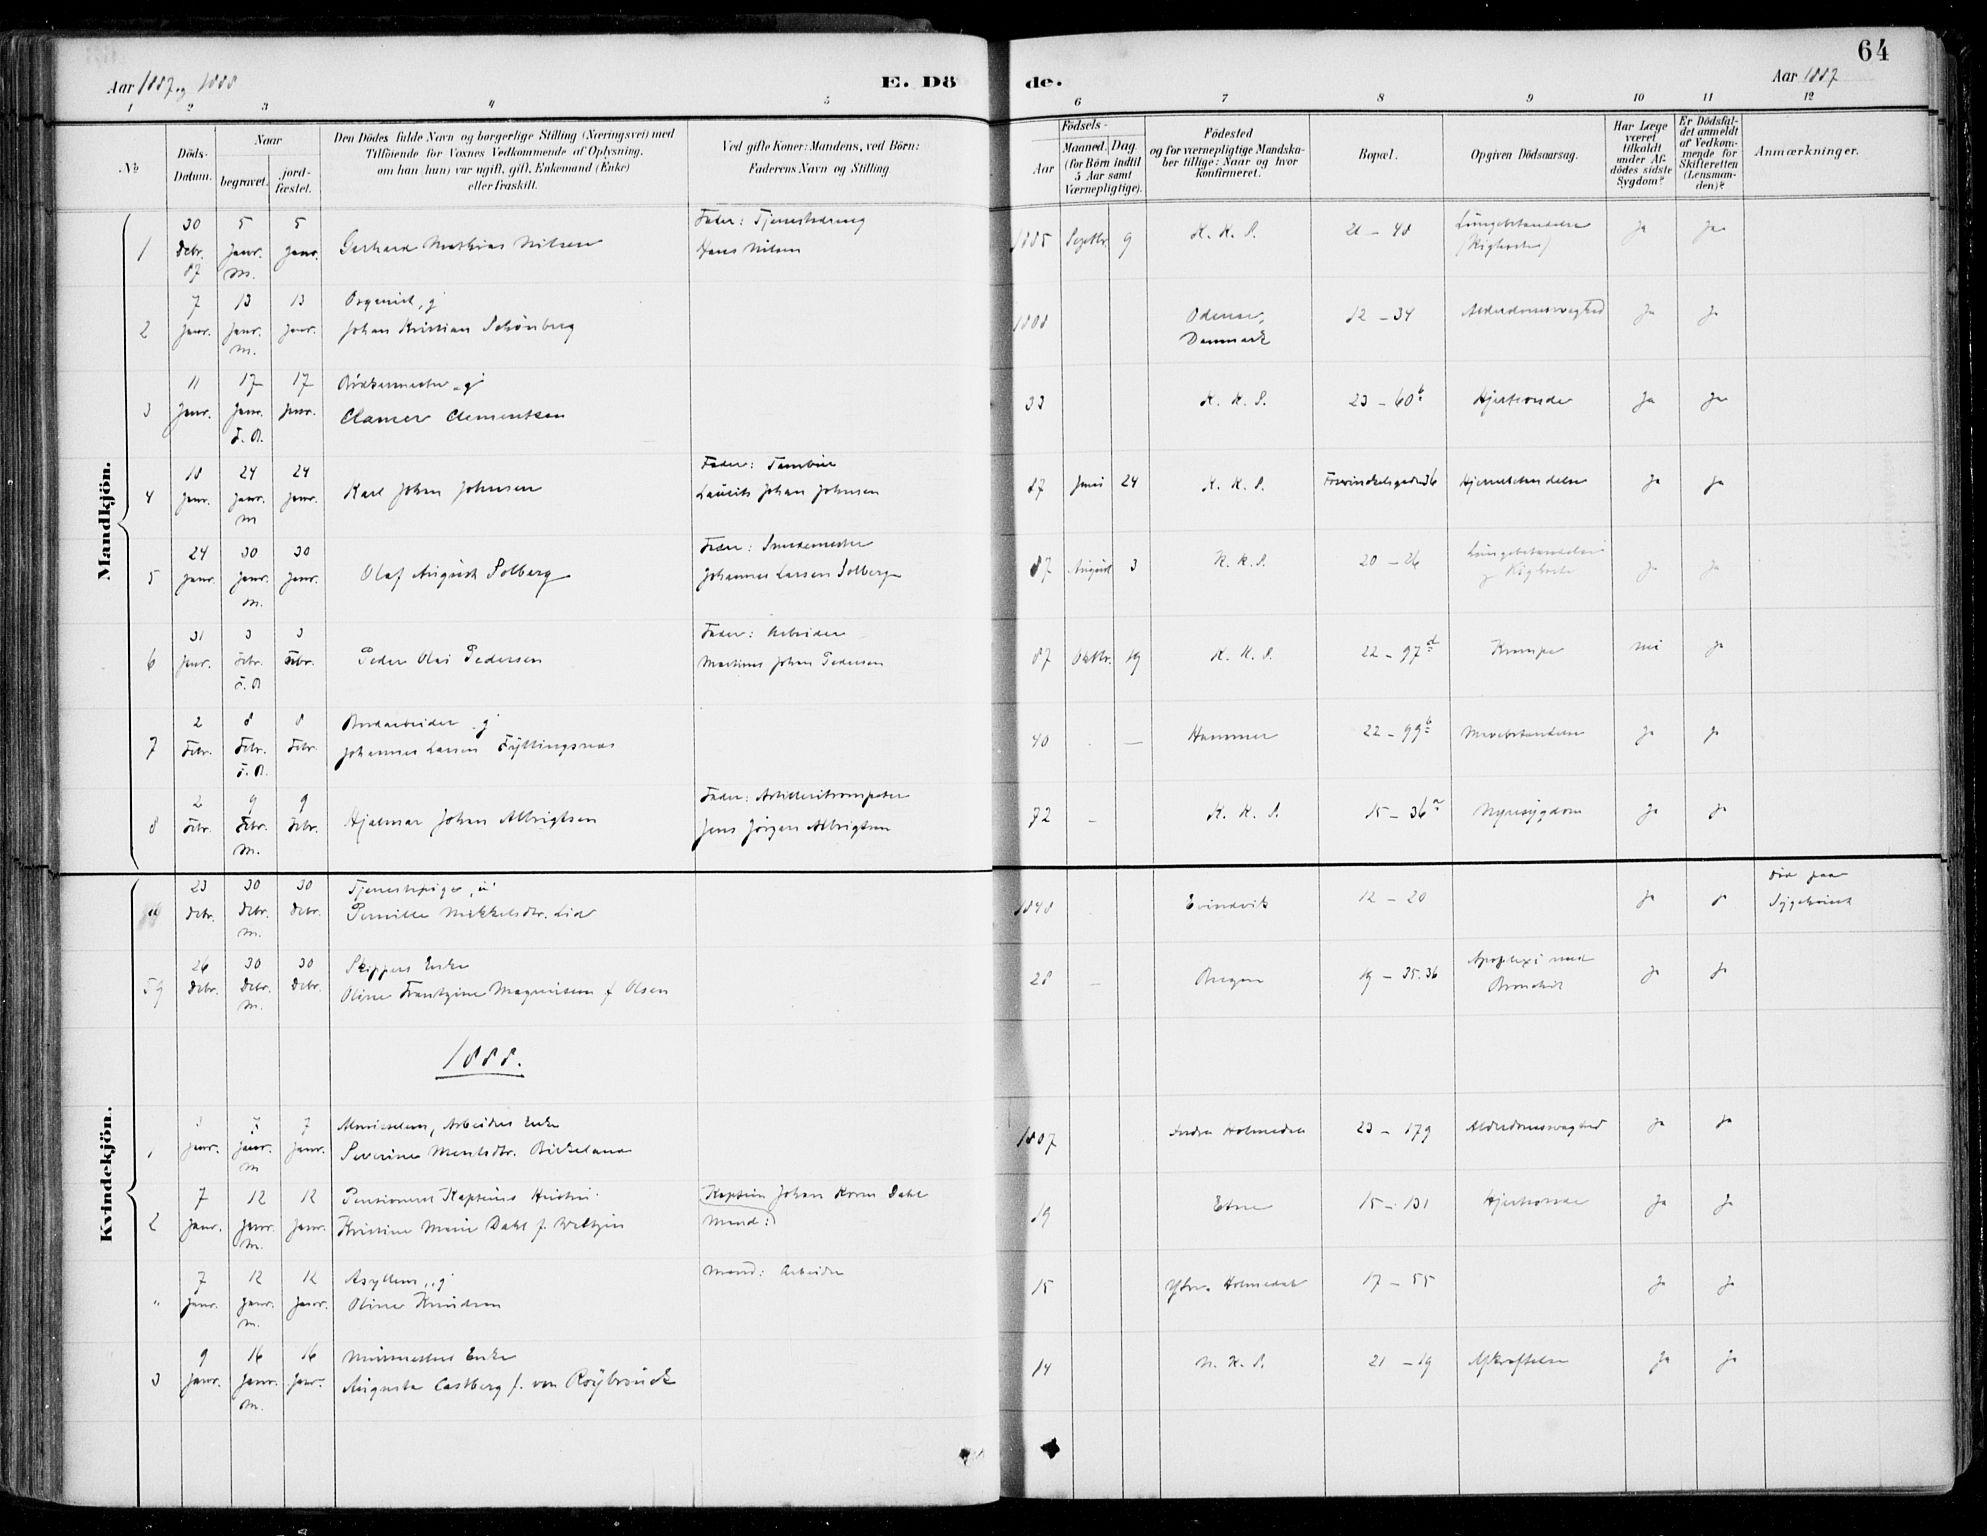 64
Aar 1887 og 1888
E. Dö de.
Aar 1887
1 2 3 4 5 6 7 8 9 10 11 12
No
Döds-Datum.
Naar
begravet. jord-fæstet.
Den Dödes fulde Navn og borgerlige Stilling (Næringsvei) med
Tilföiende for Voxnes Vedkommende af Oplysning,
om han (hun) var ugift, gift, Enkemand (Enke)
eller fraskilt.
Ved gifte Koner: Mandens, ved Börn:
Faderens Navn og Stilling
Födsels-
Aar
Maaned. Dag.
(for Börn indtil
5 Aar samt
Værnepligtige).
Födested
og for værnepligtige Mandska-
ber tillige: Naar og hvor
konfirmeret.
Bopæl.
Opgiven Dödsaarsag.
Har Læge
været
tilkaldt
under Af-
dödes sidste
Sygdom?
Er Dödsfal-
det anmeldt
af Vedkom-
mende for
Skifteretten
(Lensman-
den)?
Anmærkninger.
Mandkjön.
1 30 Debr. 87 5 Janr. M. 5 Janr. Gerhard Mathias Nilsen
Fader: Tjenestedreng
Hans Nilsen
1885 Septbr. 9 K. K. S. 21 - 48 Lungebetændelse
(Kighoste) Ja Ja
2 7 Janr. 13 Janr. M. 13 Janr. Organist, g
Johan Kristian Schönberg
1808 Odense,
Danmark 12 - 34 Alderdomssvaghed Ja Ja
3 11 Janr. 17 Janr. F. A. 17 Janr. Bødkermester, g
Clamer Clementsen
33 K. K. S. 23 - 60 b Hjerteonde Ja Ja
4 18 Janr. 24 Janr. M 24 Janr. Karl Johan Johnsen
Fader: Tambur
Laurits Johan Johnsen
87 Juni 24 K. K. S. Forvinkelsgaden 36 Hjernebetændelse Ja Ja
5 24 Janr. 30 Janr. M. 30 Janr. Olaf August Solberg
Fader: Smedemester
Johannes Larsen Solberg
87 August 3 K. K. S. 20 - 26 Lungebetændelse
og Kighoste Ja Ja
6 31 Janr. 3 Febr. F. A 3 Febr. Peder Olai Pedersen
Fader: Arbeider
Martinus Johan Pedersen
87 Oktbr. 19 K. K. S. 22 - 97 d Krampe nei Ja
7 2 Febr. 8 Febr. F. A. 8 Febr. Bordarbeider, g
Johannes Larsen Fyllingsnæs
40 - — Hammer 22 - 99 b Mavebetændelse Ja Ja
8 2 Febr. 9 Febr. M. 9 Febr. Hjalmar Johan Albrigtsen
Fader: Artilleritrompeter
Jens Jörgen Albrigtsen
72 - K. K. S. 15 - 36 a Nyresygdom Ja Ja
Kvindekjön.
23 Debr. 30 Debr. M. 30 Debr. Tjenestepige, u
Pernille Mikkelsdtr. Lid
1848 Evindvik 12 - 20 Ja Ja Död paa
Sygehuset
59 26 Debr. 30 Debr. M. 30 Debr. Skippers Enke
Oline Frantzine Magnusen f. Olsen
28 - Bergen 19 - 35.36 Apoplexi med
Bronchit Ja Ja
1888.
1 3 Janr. 7 Janr. M 7 Janr. Almisselem, Arbeiders Enke
Severine Monsdtr. Birkeland
1807 Indre Holmedal 23 - 179 Alderdomssvaghed Ja Ja
2 7 Janr. 12 Janr. M. 12 Janr. Pensioneret Kapteins Hustru
Kristine Marie Dahl f. Weltzin
Kaptein Johan Koren Dahl
Mand:
19 Etne 15 - 131 Hjerteonde Ja Ja
" 7 Janr. 12 Janr. M. 12 Janr. Asyllem, g
Oline Knudsen
Mand: Arbeider
15 Ytre Holmedal 17 - 55 Ja Ja
3 9 Janr. 16 Janr. M. 16 Janr. Murmesters Enke
Augusta Castberg f. von Roÿbrouck
14 N. K. S. 21 - 19 Afkræftelse Ja Ja